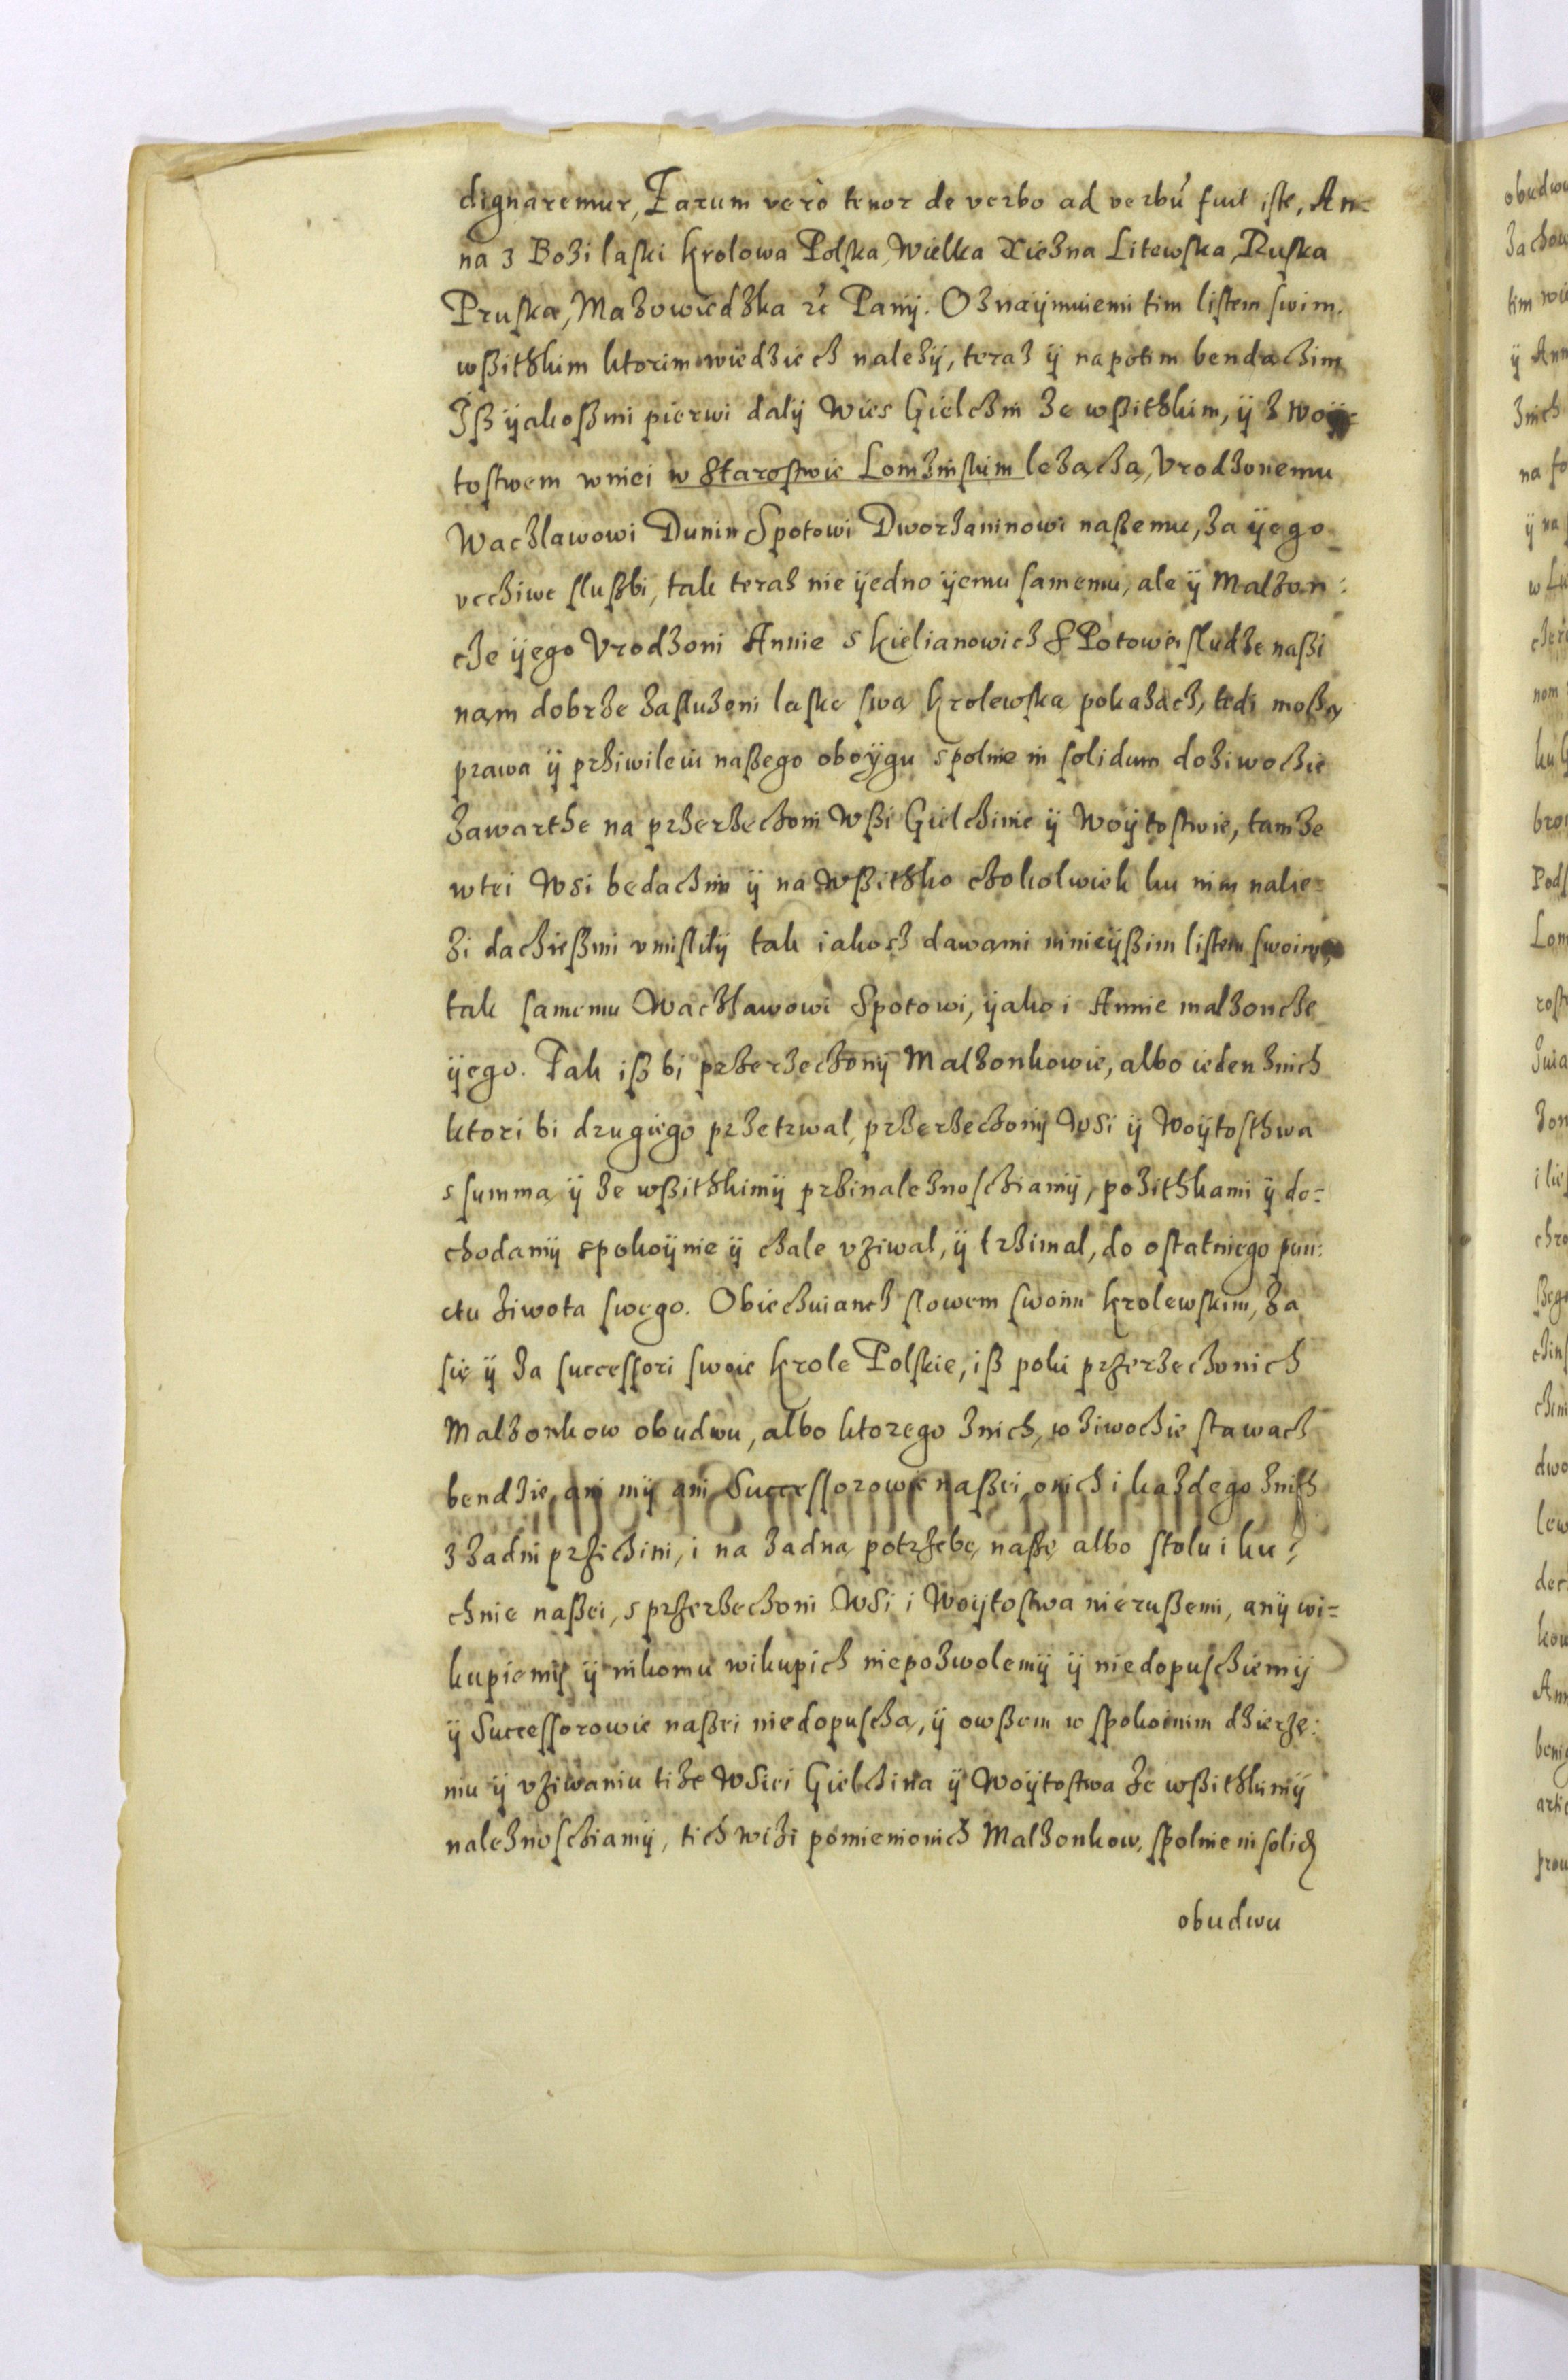 dignaremur, Earum vero tenor de verbo ad verbu fuit iste, An=
na z Bozi laski Krolowa Polska, Wielka Xiezna Litewska, Ruska
Pruska, Mazowiedzka rc Panij. Oznaÿmuiemi tim listem swim.
wßitzkim ktorim wiedziecz nalezÿ, teraz ÿ napotim bendaczim
Iß ÿakoßmi pierwi dalÿ Wies Gielczin ze wßitzkim, ÿ z Woÿ=
tostwem wniei w Starostwie Lomzinskim lezącza, Vrodzonemu
Waczlawowi Dunin Spotowi Dworzaninowi naßemu, za ÿego
vcchiwe slußbi, tak teraz nie ÿedno ÿemu samemu, ale ÿ Malzon:
cze ÿego Vrodzoni Annie s Kielianowicz SPotowei sludze naßi
nam dobrze zasluzoni laske swa Krolewska pokazacz, tedi moßą
prawa ÿ prziwileiu naßego oboÿgu spolnie in solidum doziwoczie
zawarthe na przerzeczoni Wßi Gielczinie ÿ Woÿtostwie, tamze
wtei Wsi bedacznÿ ÿ na Wßitzko czokolwiek ku nim nalie=
zi daczießmi vmislilÿ tak iakosz dawami ninieÿßim listem swoim,
tak samemu Waczlawowi Spotowi, ÿako i Annie malzoncze
ÿego. Tak iß bi przerzeczonÿ Malzonkowie, albo ieden znich
ktori bi drugiego przetrwal, przerzeczonÿ Wsi ÿ Woÿtosthwa
s summa ÿ ze wßitzkimÿ przinaleznoscziamÿ, pozitzkami ÿ do=
chodamÿ spokoÿnie ÿ czale vziwal, ÿ trzimal, do ostatniego pun:
ctu ziwota swego. Obieczuiancz slowem swoim Krolewskim, za
się ÿ za successori swoie Krole Polskie, iß poki przerzeczonich
Malzonkow obudwu, albo ktorego znich, w ziwoczie stawacz
bendzie, ani mÿ ani Successorowie naßei, onich i kazdego znich
z zadni prziczini, i na zadna potrzebe naße albo stolu i ku=
chnie naßei, s przerzeczoni Wsi i Woÿtostwa nierußemi, anÿ wi=
kupiemÿ ÿ nikomu wikupicz niepozwolemÿ ÿ niedopusczemÿ
ÿ Successorowie naßei niedopuscza, ÿ owßem w spokoinim dzierze:
niu ÿ vziwaniu tize Wsiei Gielczina ÿ Woÿtostwa ze wßitzkimÿ
naleznoscziamÿ, tich wizi pomienionich Malzonkow, spolnie in solid
obudwu